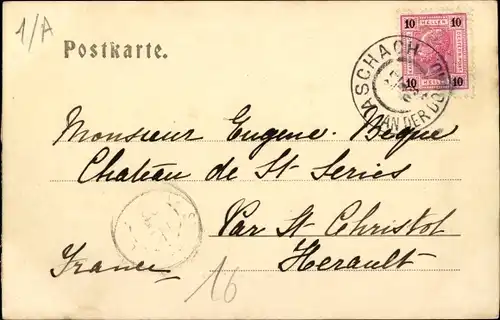 1/A
Postkarte.
10 HELLER 10
10 10
ASCHACH AN DER DONAU
Monsieur Eugene Begue
Chateau de St Series
Par St Christol
France Herault
16